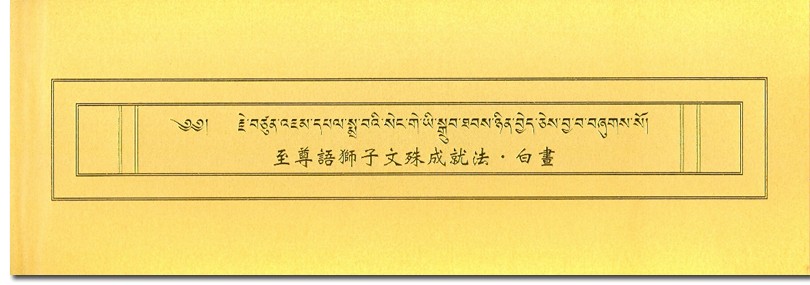 ༄༅། རྗེ་བཙུན་འཇམ་དཔལ་སྨྲ་བའི་སེང་གེ་ཡི་སྒྲུབ་ཐབས་ཉིན་བྱེད་ཅེས་བྱ་བ་བཞུགས་སོ།
至尊語獅子文殊成就法·白晝